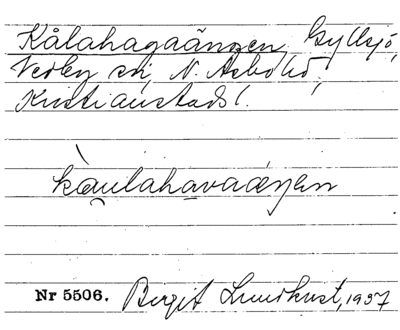 Kålahagaängen, Gyllsjö,
Verby sn, N. Åsbo hd,
Kristianstads l.
kau̯lahavaäŋen
Nr 5506. Birgit Lundkvist, 1937